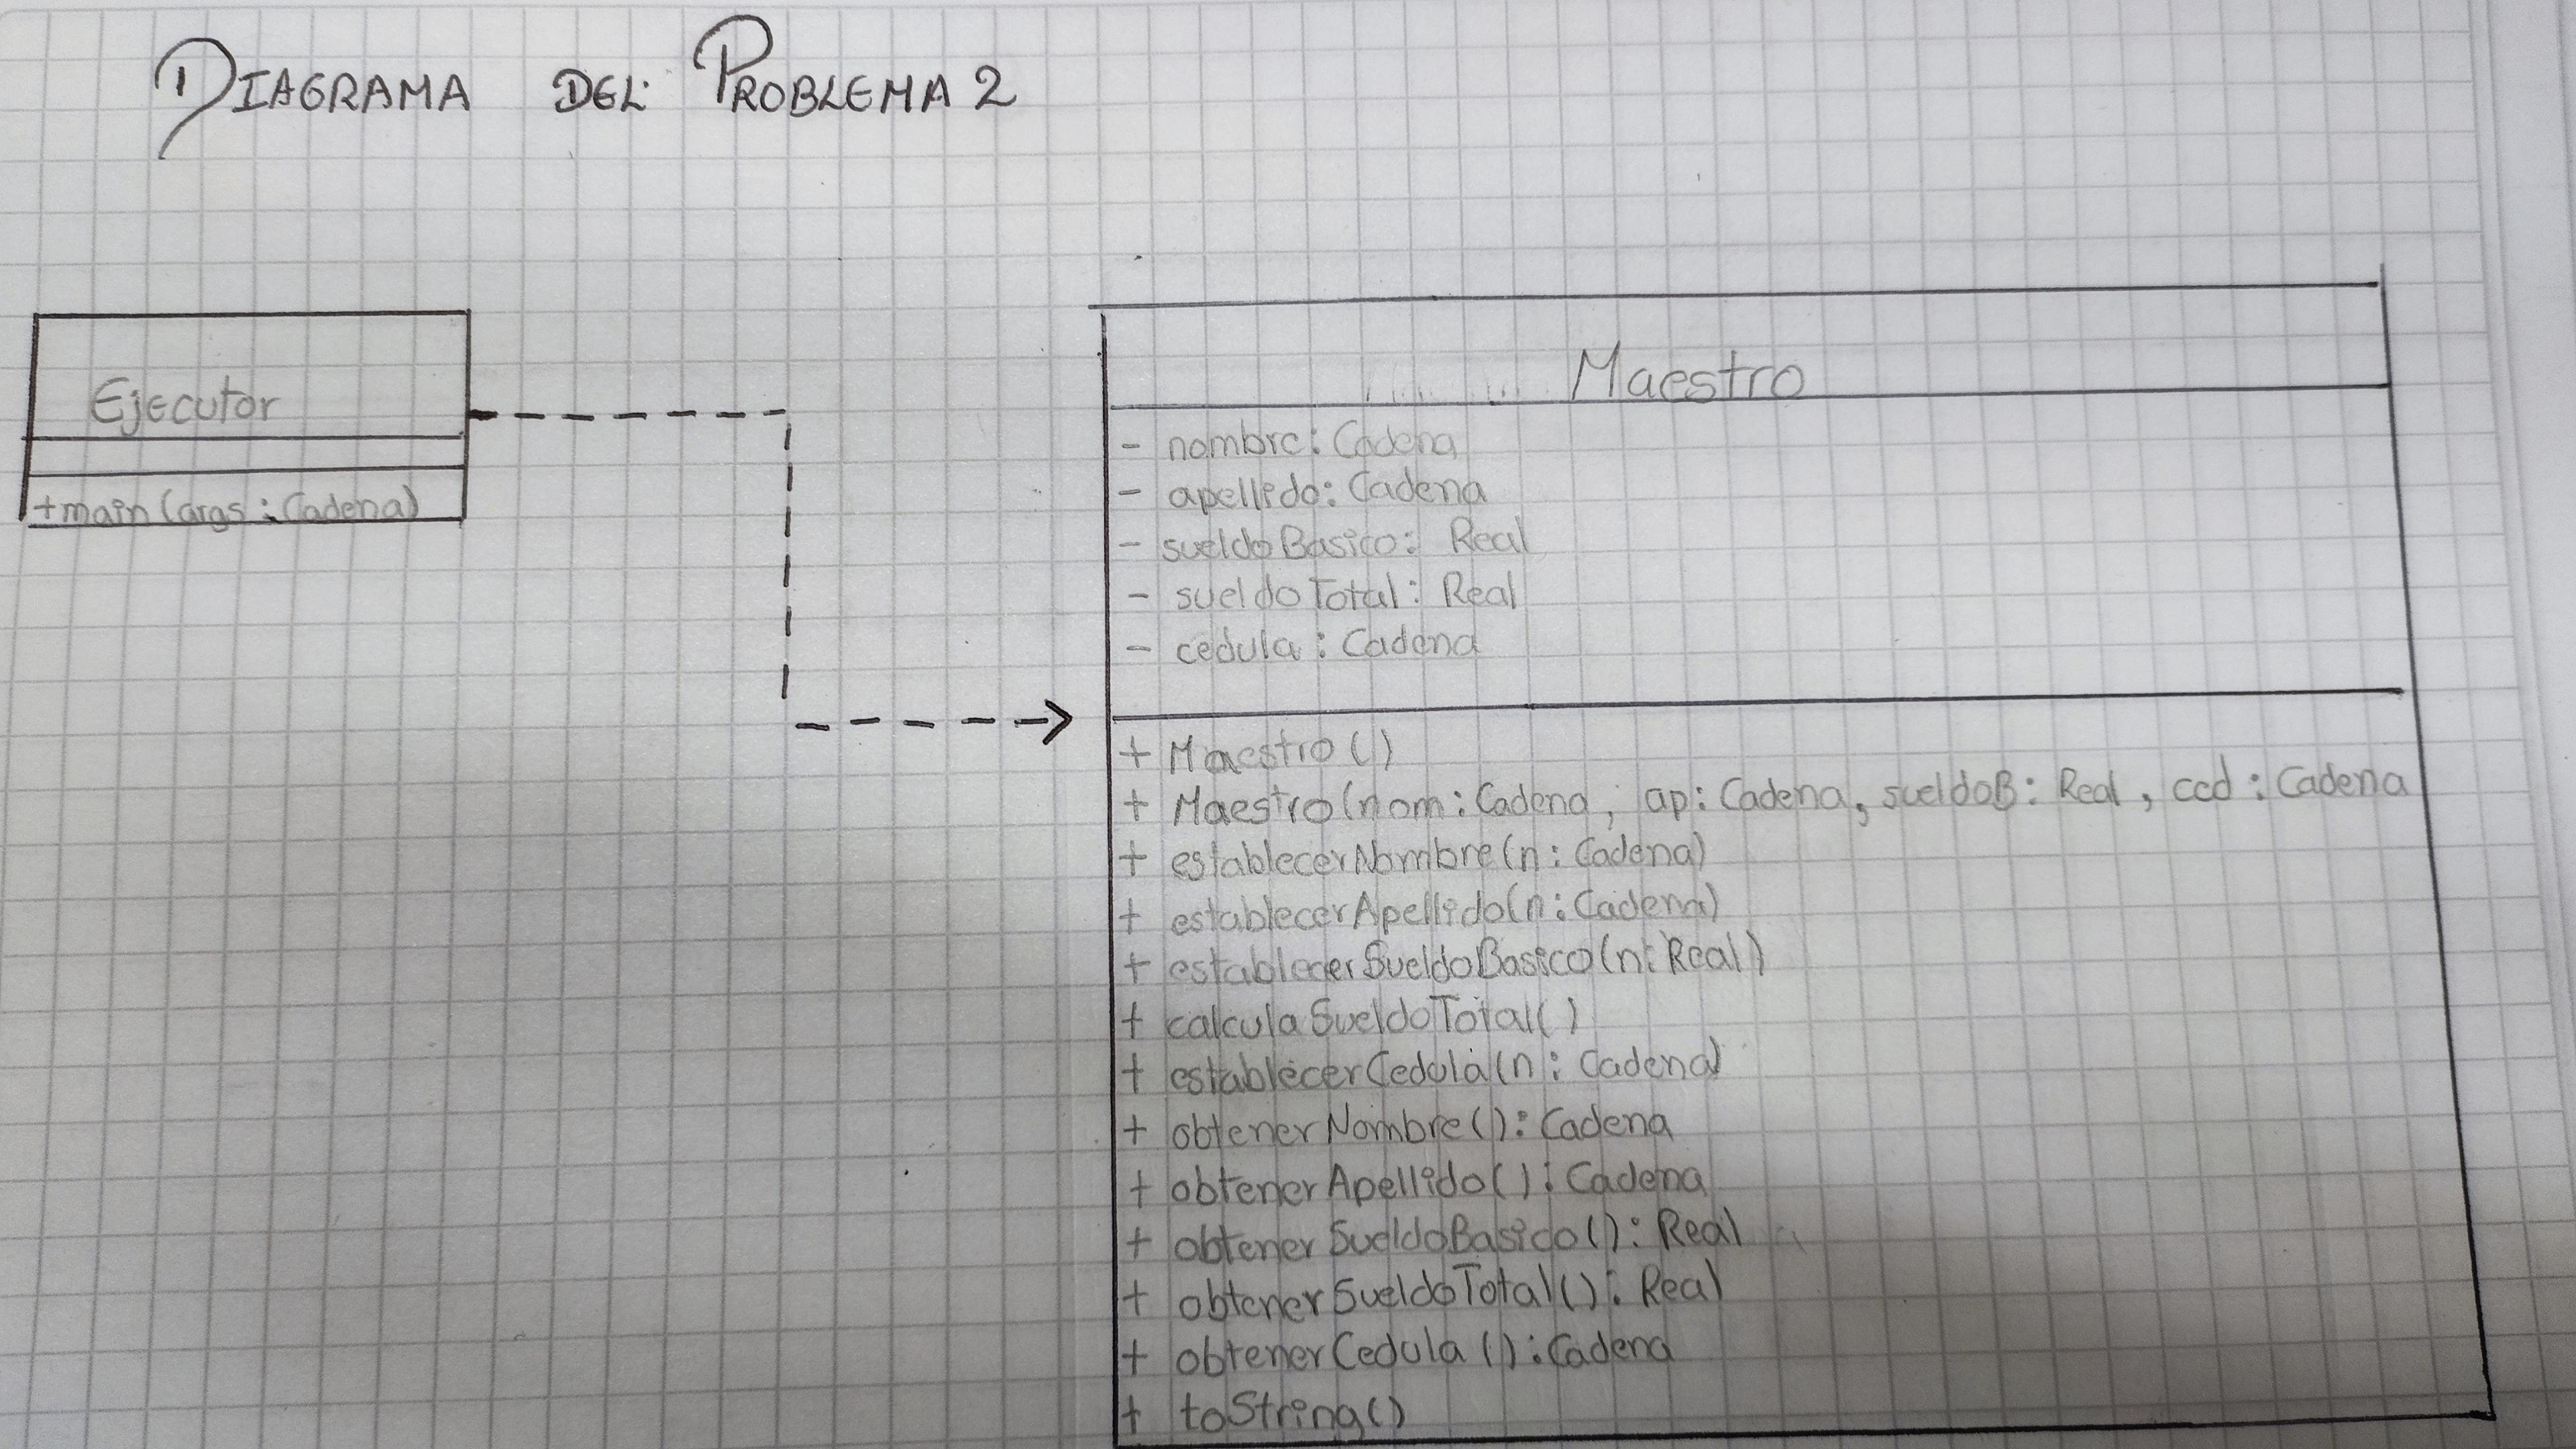 DIAGRAMA DEL PROBLEMA 2
Ejecutor
+main(args: Cadena)
Maestro
- nombre: Cadena
- apellido: Cadena
- sueldoBasico: Real
- sueldoTotal: Real
- cedula: Cadena
+ Maestro()
+ Maestro(nom: Cadena, ap: Cadena, sueldoB: Real, ced: Cadena
+ establecerNombre(n: Cadena)
+ establecerApellido(n: Cadena)
+ establecerSueldoBasico(n: Real)
+ calculaSueldoTotal()
+ establecerCedula(n: Cadena)
+ obtenerNombre(): Cadena
+ obtenerApellido(): Cadena
+ obtenerSueldoBasico(): Real
+ obtenerSueldoTotal(): Real
+ obtenerCedula(): Cadena
+ toString()